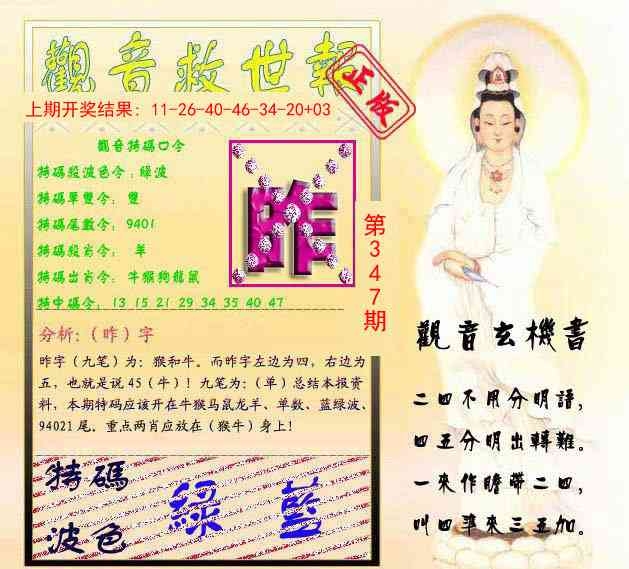 觀音救世報
正版
上期开奖结果：11-26-40-46-34-20+03
觀音特碼口令
特碼殺波色令：綠波
特碼單雙令： 雙
特碼尾數令：9401
特碼殺肖令： 羊
特碼出肖令：牛猴狗龍鼠
特中碼令： 13 15 21 29 34 35 40 47
昨
第347期
分析：（昨）字
昨字（九笔）为：猴和牛。而昨字左边为四，右边为
五，也就是说 45（牛）！九笔为：（单）总结本报资
料，本期特码应该开在牛猴马鼠龙羊、单数、蓝绿波、
94021 尾。重点两肖应放在（猴牛）身上！
特碼
波色
綠 藍
觀音玄機書
二四不用分明語，
四五分明出轉難。
一來作瞻帶二四，
叫四準來三五加。